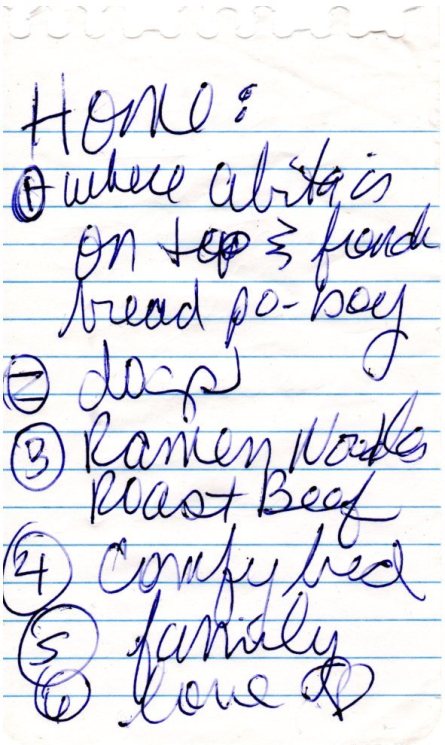 Home:
① where abita is
on tap & french
bread po-boy
② dogs!
③ Ramen Noodles
Roast Beef
④ Comfy bed
⑤ family
⑥ love ♡